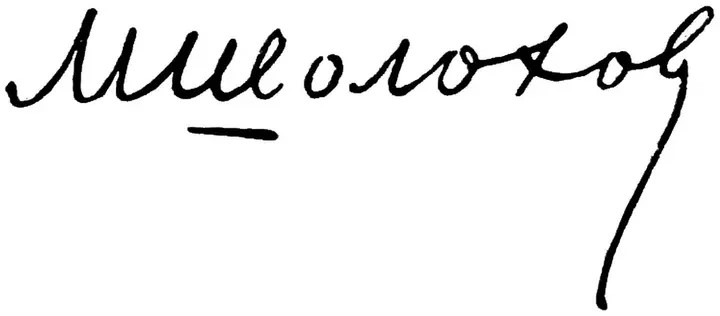 М Шолохов